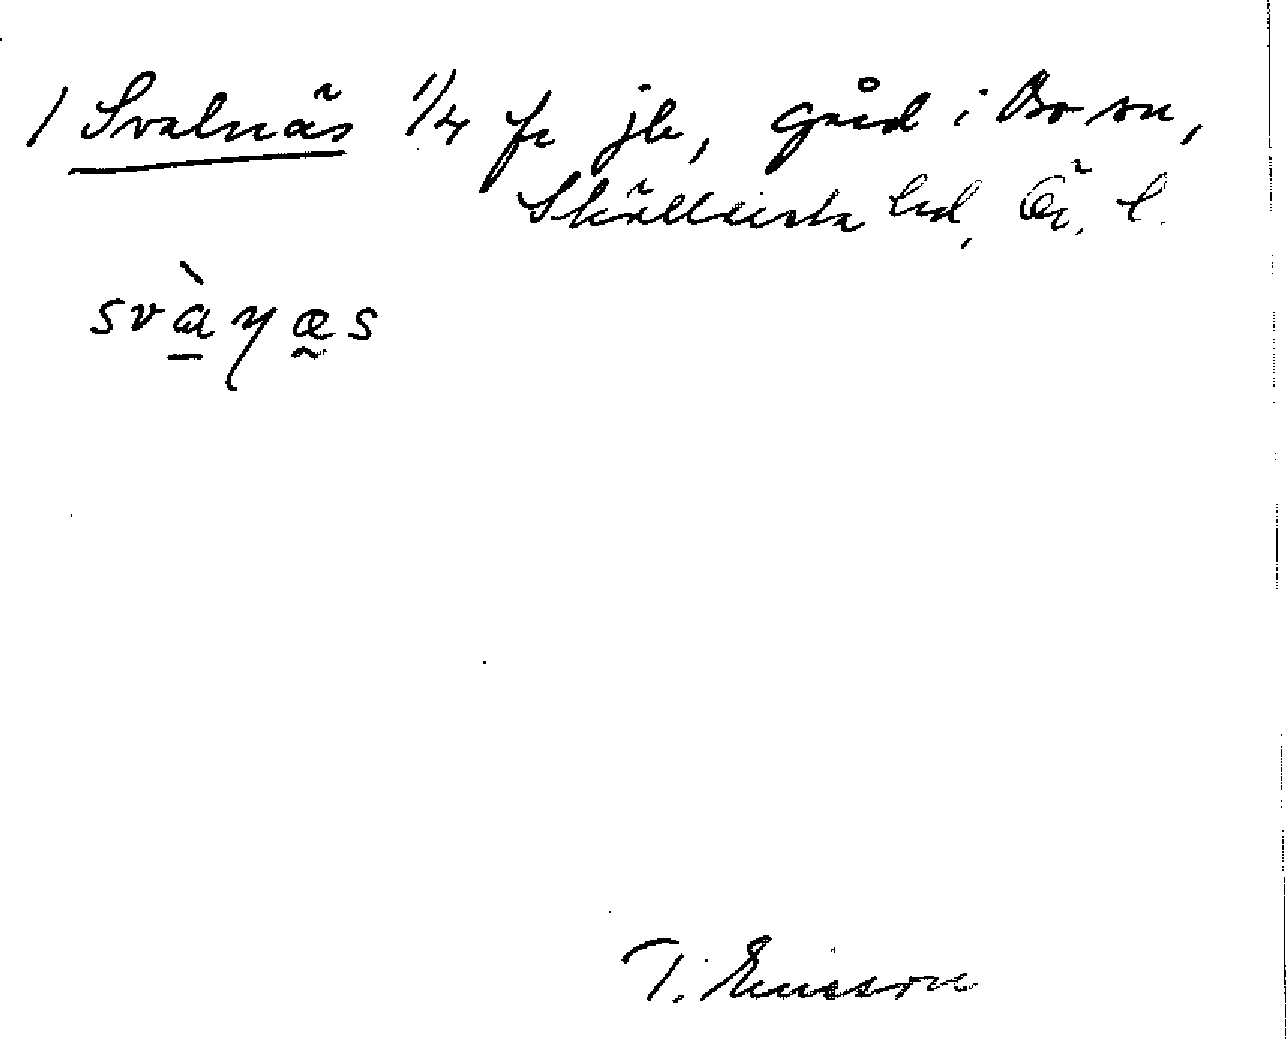 1 Svalnäs 1/4 fr jb, gård i Bo sn,
Skällvista hd, Ör. l.
svàŋæs
T. Ericson